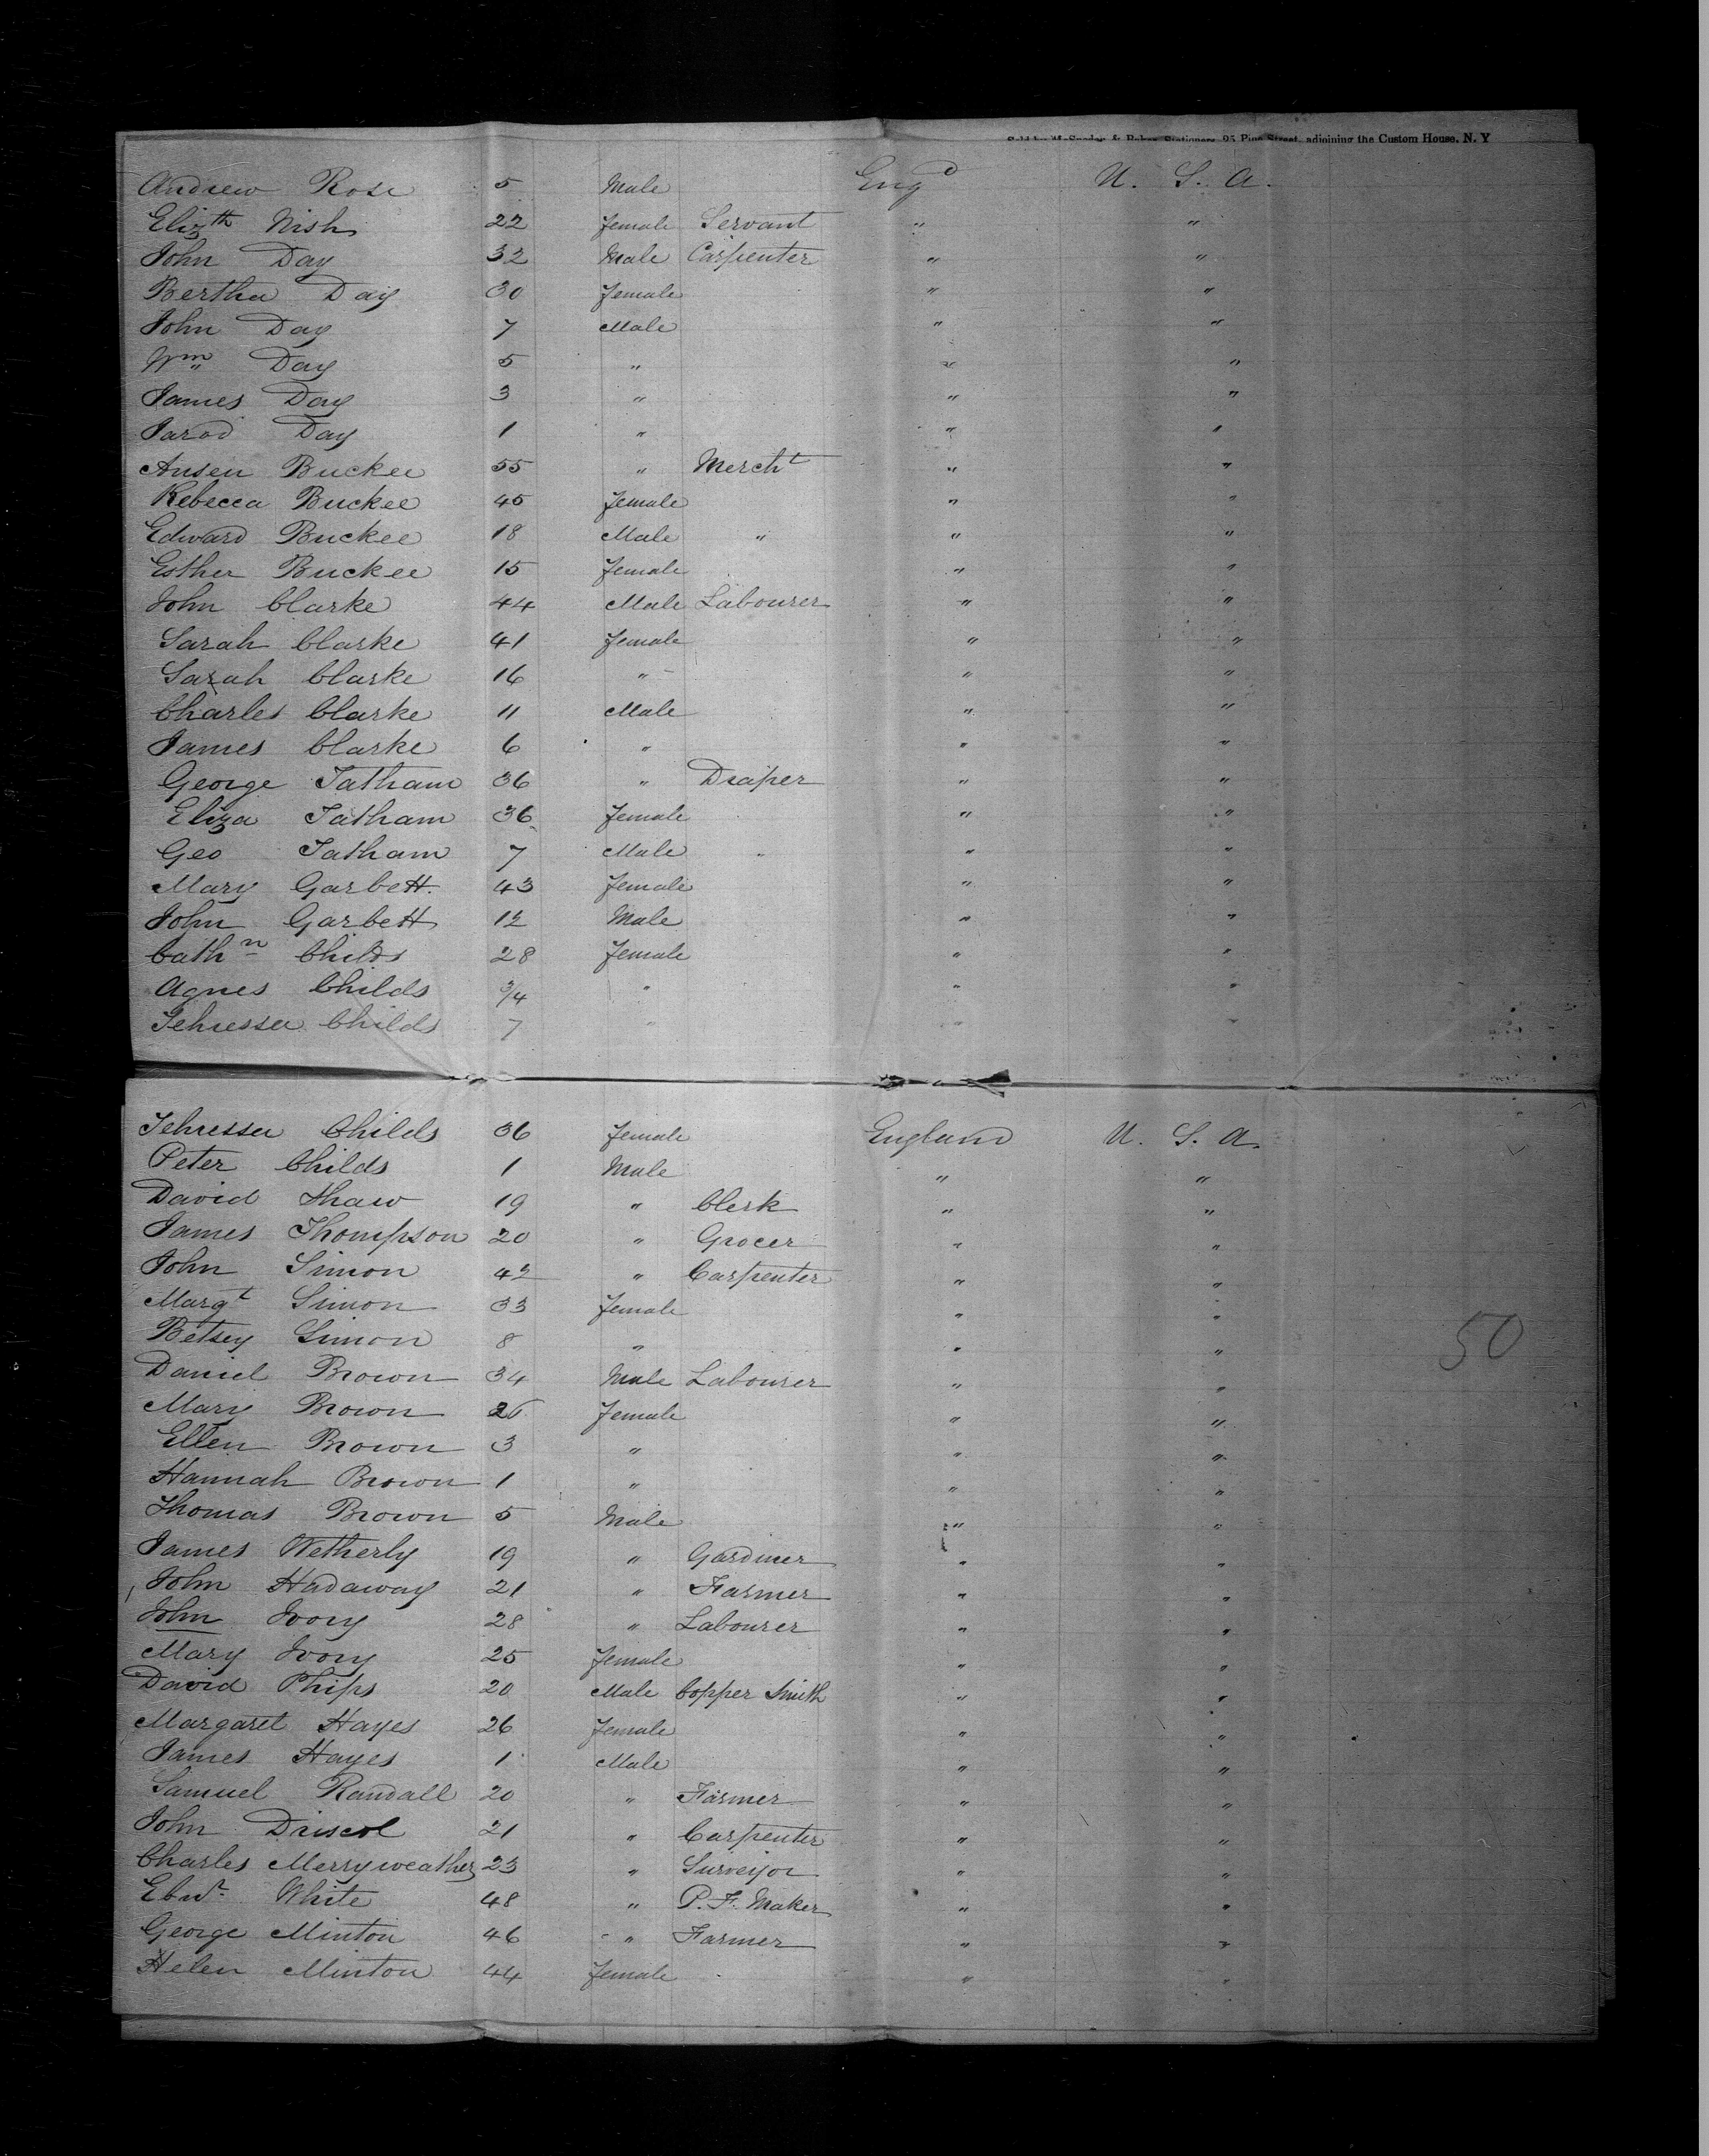 Stationers, 95 Pine Street, adjoining the Custom House, N. Y
Andrew Rose 5 Male Eng^d U. S. A.
Eliz^th Nish 22 Female Servant " "
John Day 32 Male Carpenter " "
Bertha Day 30 Female " "
John Day 7 Male " "
W^m Day 5 " " "
James Day 3 " " "
Jarod Day 1 " " "
Ansen Buckee 55 " Merch^t " "
Rebecca Buckee 45 Female " "
Edward Buckee 18 Male " " "
Esther Buckee 15 Female " "
John Clarke 44 Male Labourer " "
Sarah Clarke 41 Female " "
Sarah Clarke 16 " " "
Charles Clarke 11 Male " "
James Clarke 6 " " "
George Tatham 36 " Draper " "
Eliza Tatham 36 Female " "
Geo Tatham 7 Male " "
Mary Garbett 43 Female " "
John Garbett 12 Male " "
Cath^n Childs 28 Female " "
Agnes Childs 3/4 " " "
Tehressa Childs 7 " " "
Tehressa Childs 36 Female England U. S. A.
Peter Childs 1 Male " "
David Shaw 19 " Clerk " "
James Thompson 20 " Grocer " "
John Simon 42 " Carpenter " "
Marg^t Simon 33 Female " "
Betsey Simon 8 " " "
Daniel Brown 34 Male Labourer " "
Mary Brown Female " "
Ellen Brown 3 " " "
Hannah Brown 1 " " "
Thomas Brown 5 Male " "
James Wetherly 19 " Gardiner " "
John Hadaway 21 " Farmer " "
John Ivory 28 " Labourer " "
Mary Ivory 25 Female " "
David Phips 20 Male Copper Smith " "
Margaret Hayes 26 Female " "
James Hayes 1 Male " "
Samuel Randall 20 " Farmer " "
John Driscol 21 " Carpenter " "
Charles Merryweather 23 " Surveyor " "
Ebn^r White 48 " P. F. Maker " "
George Minton 46 " Farmer " "
Helen Minton 44 Female " "
50